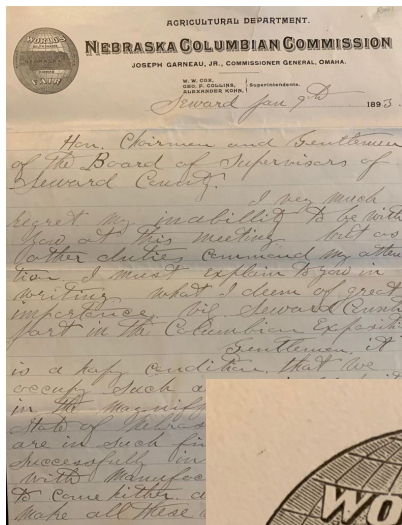 WORLD'S
FAIR
AGRICULTURAL DEPARTMENT.
NEBRASKA COLUMBIAN COMMISSION
JOSEPH GARNEAU, JR., COMMISSIONER GENERAL, OMAHA.
W. W. COX,
GEO. F. COLLINS,
ALEXANDER KOHN,
Superintendents.
Seward Jan 9th 1893.
Hon. Chairman and Gentlemen
of the Board of Supervisors of
Seward County.
I very much
regret my inabillity to be with
you at this meeting but as
other duties command my atten
tion I must explain to you in
writing what I deem of great
importance. viz Seward County
part in the Columbian Expositi
Gentlemen, it
is a hapy condition that we
occupy such a
in the magnif
State of Nebras
are in such fin
successfully in
with manufac
to come hither a
make all these
WO